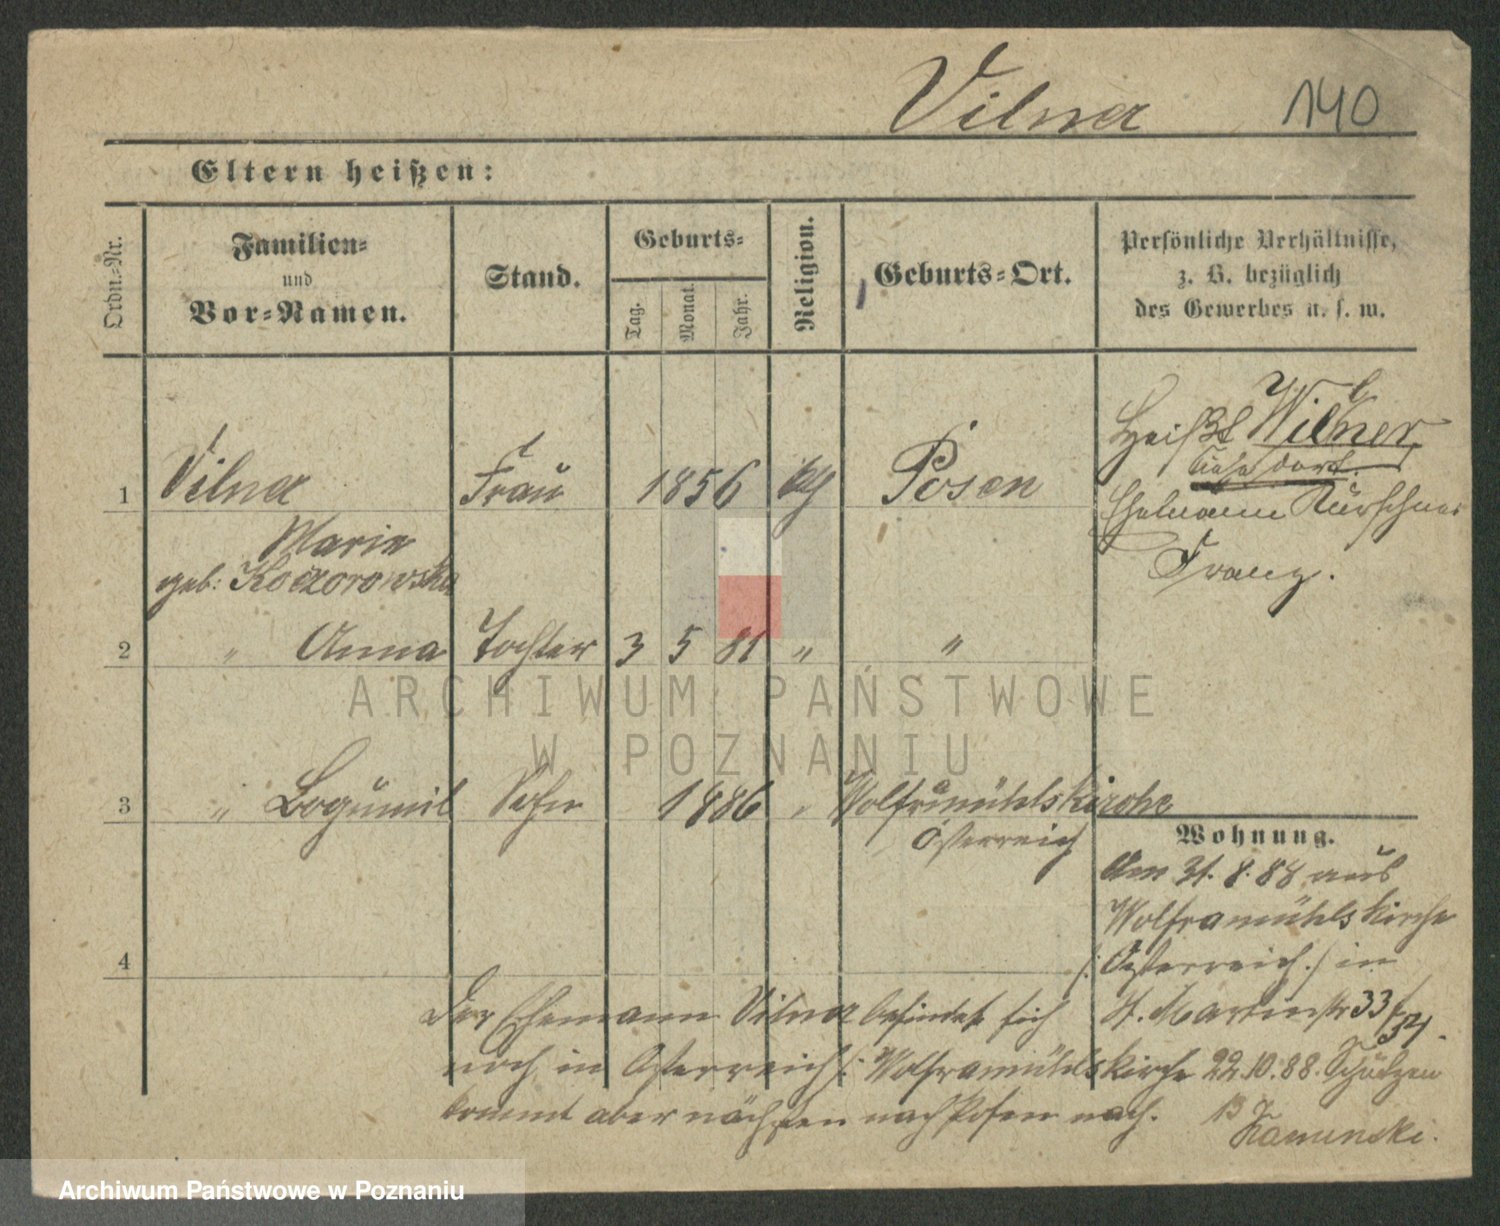 Vilner 140
Eltern heißen:
Ordn.-Nr.
Familien-
und
Vor-Namen.
Stand.
Geburts-
Tag.
Monat.
Jahr.
Religion.
Geburts-Ort.
Persönliche Verhältnisse,
z. B. bezüglich
des Gewerbes u. s. w.
Heißt Wilner
siehe dort
1 Vilner Frau 1856 kth Posen
Ehemann Kürschner
Marie
Franz.
geb: Koczorowska
2 " Anna Tochter 3 5 81 " "
ARCHIWUM PAŃSTWOWE
W POZNANIU
3 " Bogumil Sohn 1886 " Wolframühlskirche
Österreich
Wohnung.
Am 31.8.88 aus
Wolframühlskirche
4
/: Österreich :/ in
St. Martinstr 33/34.
Der Ehemann Vilner befindet sich
noch in Österreich /: Wolframühlskirche
22.10.88. Schützen
kommt aber nach Posen nach.
13 Kaminski.
Archiwum Państwowe w Poznaniu